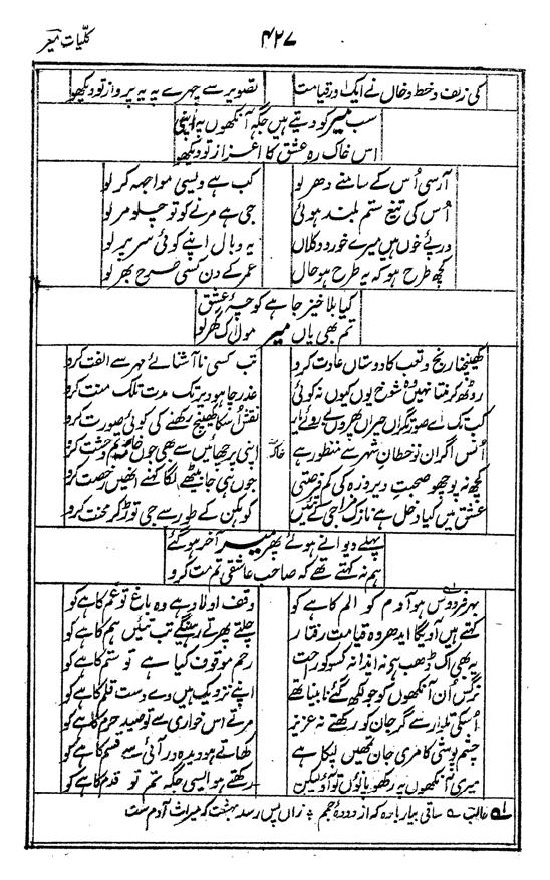 کلیات میر
۴۲۷
کی زلف و خط و خال نے ایک اور قیامت
تصویر سے چہرے پہ یہ پرواز تو دیکھو
سب میر کو دیتے ہیں جگہ آنکھوں پہ اپنی
اس خاک رہ عشق کا اعزاز تو دیکھو
آرسی اُس کے سامنے دھر لو
کب ہے ویسی مواجہہ کر لو
اُس کی تیغ ستم بلند ہوئی
جی ہے مرنے کو تو چلو مر لو
درپئے خوں ہیں میرے خورد و کلاں
یہ وبال اپنے کوئی سر پر لو
کچھ طرح ہو کہ بے طرح ہو حال
عمر کے دن کسی طرح بھر لو
کیا بلا خیز جا ہے کوچۂ عشق
تم بھی یاں میر مول اک گھر لو
کھینچنا رنج و تعب کا دوستاں عادت کرو
تب کسی ناآشنائے مہر سے الفت کرو
روٹھ کر منتا نہیں وہ شوخ یوں کیوں نہ کوئی
عذر چاہو دیر تک مدت تلک منت کرو
کب تک اے صورت گراں حیراں پھروں بے روئے یار
نقش اُس کا کھینچ رکھنے کی کوئی صورت کرو
انس اگر ان نوخطان شہر سے منظور ہے
اپنی پرچھائیں سے بھی جوں خامہ تم وحشت کرو
کچھ نہ پوچھو صحبت دیروزہ کی کم فرصتی
جوں ہی جا بیٹھے لگا کہنے انھیں رخصت کرو
عشق میں کیا دخل ہے نازک مزاجی کے تئیں
کوہکن کے طور سے جی توڑ کر محنت کرو
پہلے دیوانے ہوئے پھر میر آخر ہو گئے
ہم نہ کہتے تھے کہ صاحب عاشقی تم مت کرو
بہر فردوس ہو آدم کو الم کاہے کو
وقف اولاد ہے وہ باغ تو غم کاہے کو
کہتے ہیں آویگا ایدھر وہ قیامت رفتار
چلتے پھرتے رہینگے تب تئیں ہم کاہے کو
یہ بھی اک ڈھب ہے نہ ایذا نہ کسو کو رحمت
رحم موقوف کیا ہے تو ستم کاہے کو
نرگس اُن آنکھوں کو جو لکھ گئے نابینا تھے
اپنے نزدیک ہیں وے دست قلم کاہے کو
اُسکی تلوار سے گر جان کو رکھتے نہ عزیز
مرتے اس خواری سے تو صید حرم کاہے کو
چشم پوشی کا مری جان تمھیں لپکا ہے
کھاتے ہو دیدہ درآئی سے قسم کاہے کو
میری آنکھوں پہ رکھو پاؤں تو آؤ لیکن
رکھتے ہو ایسی جگہ تم تو قدم کاہے کو
غالب ساقی بیار بادہ کہ از دودۂ جمیم زاں پس رسد بہشت کہ میراث آدم ست